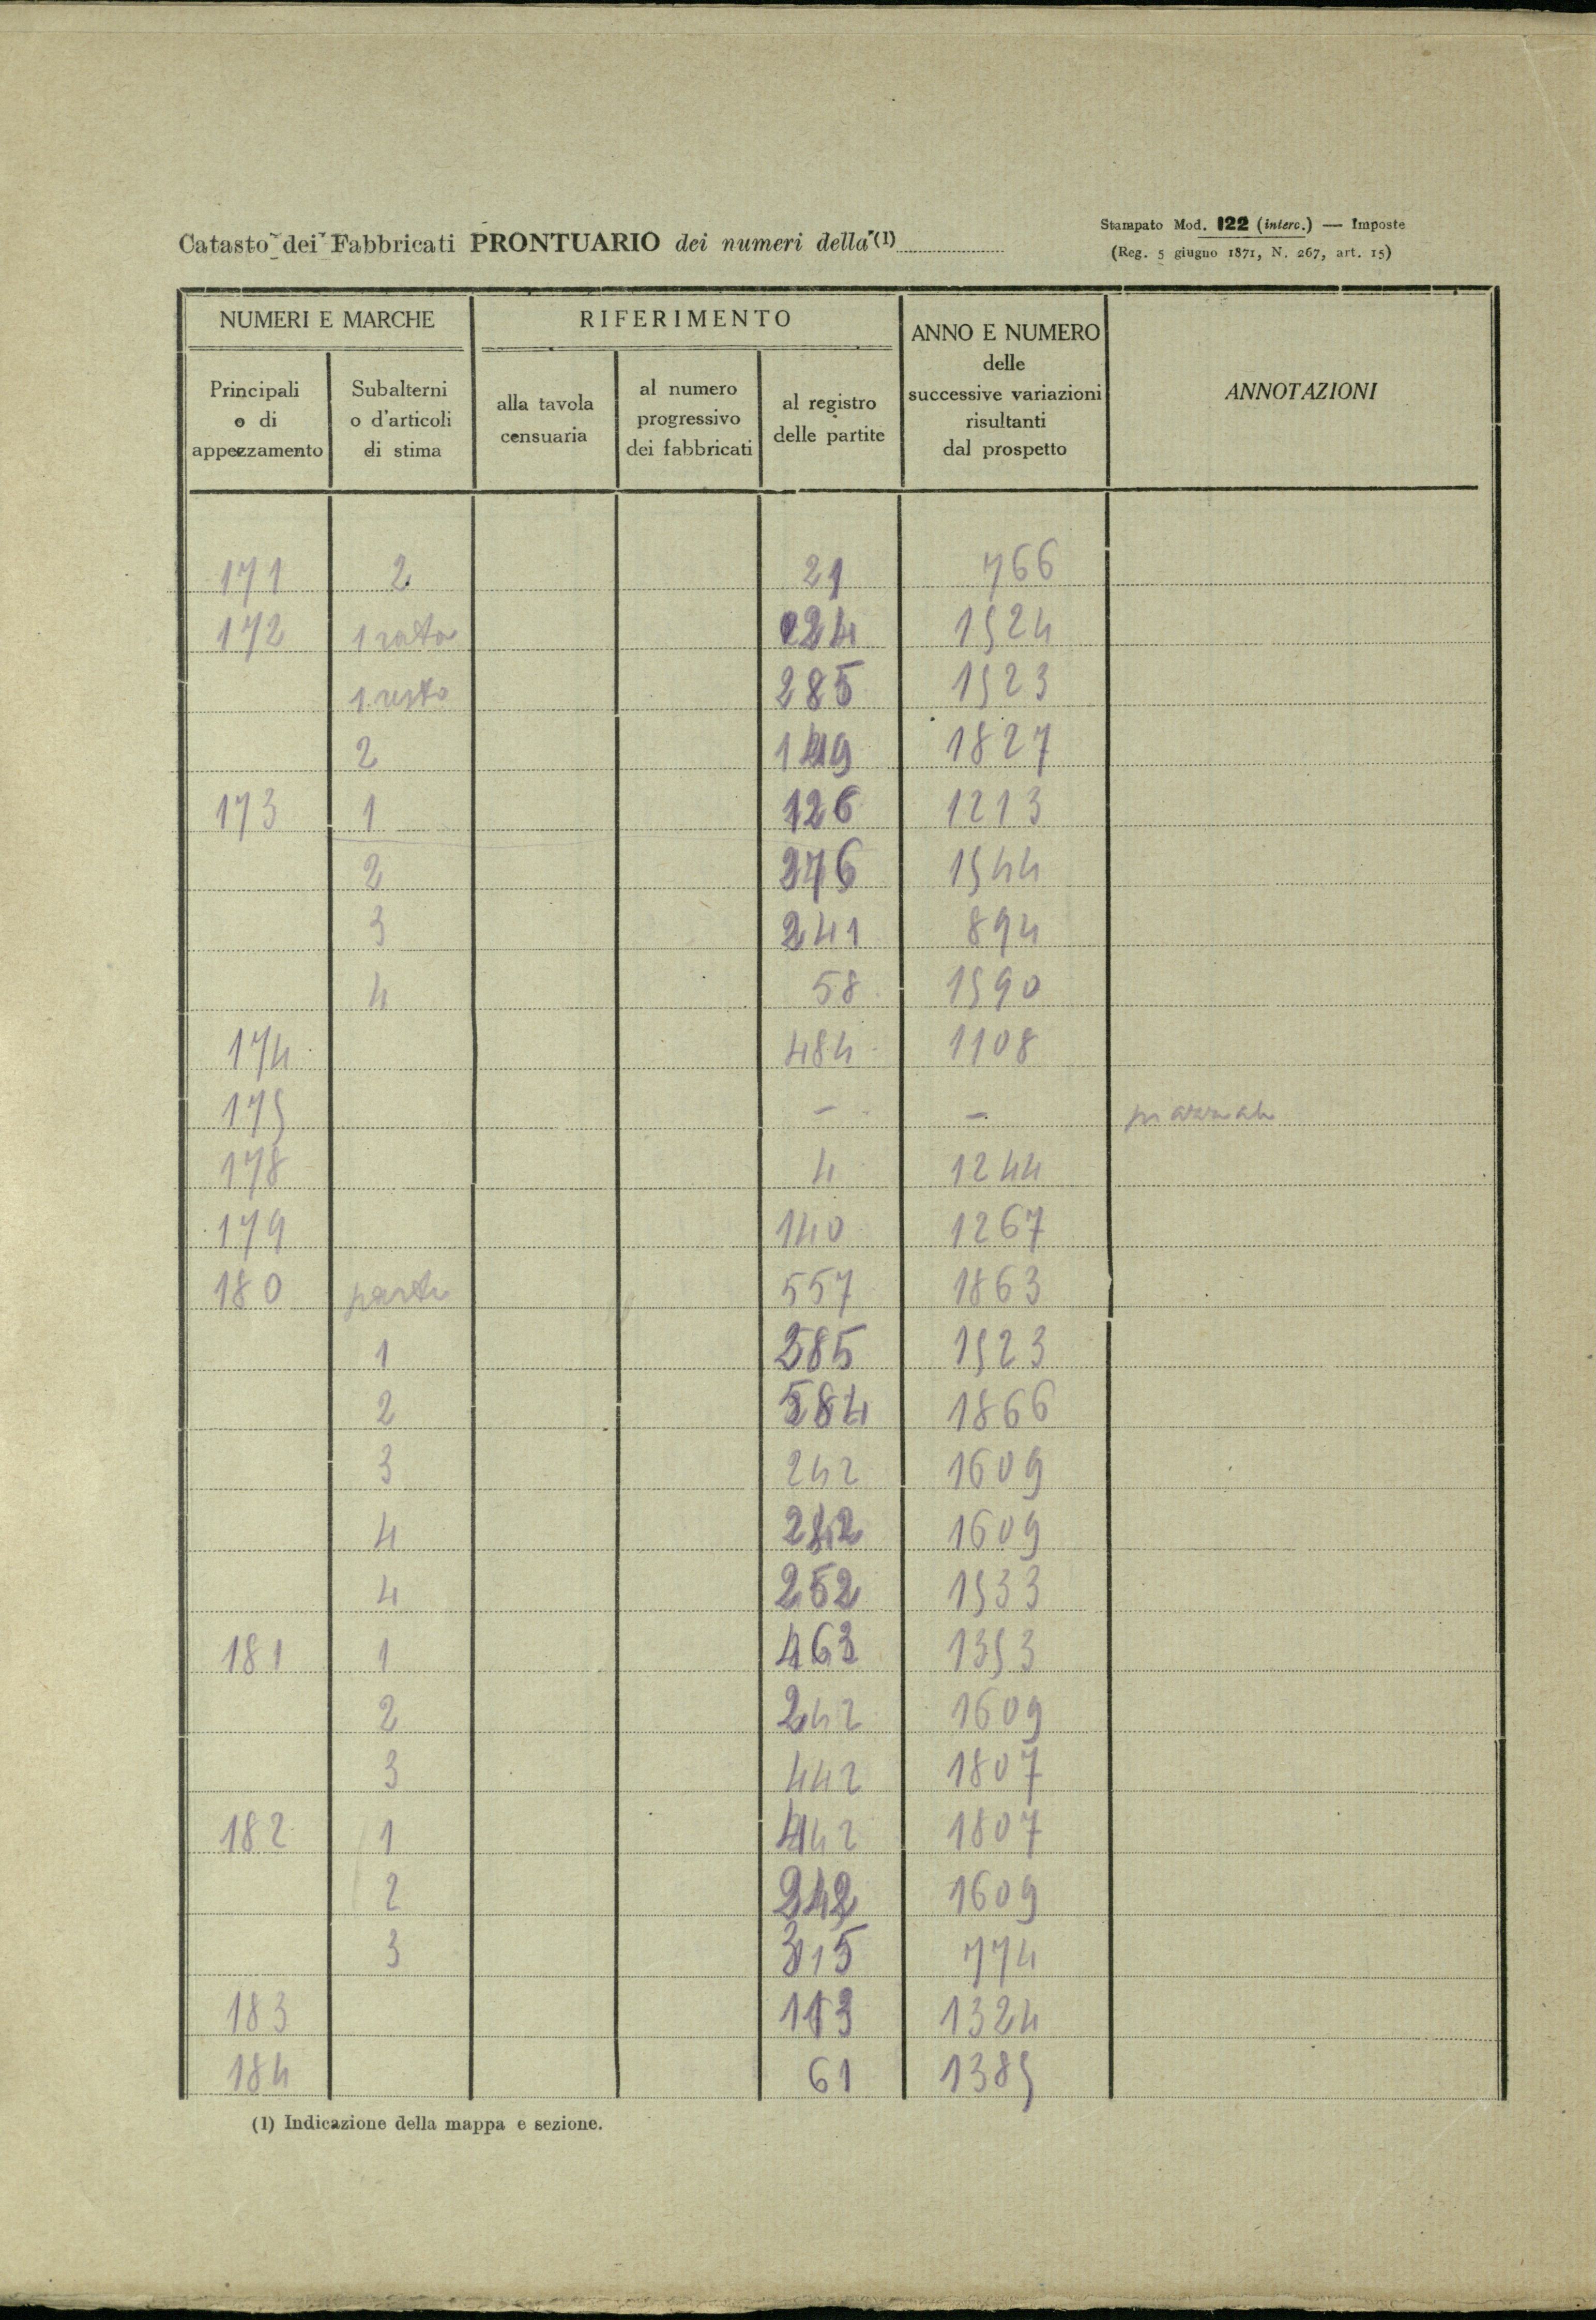 Catasto dei Fabbricati PRONTUARIO dei numeri della (1)
Stampato Mod. 122 (interc.) — Imposte
(Reg. 5 giugno 1871, N. 267, art. 15)
NUMERI E MARCHE
RIFERIMENTO
ANNO E NUMERO
delle
successive variazioni
risultanti
dal prospetto
ANNOTAZIONI
Principali
o di
appezzamento
Subalterni
o d'articoli
di stima
alla tavola
censuaria
al numero
progressivo
dei fabbricati
al registro
delle partite
171 2 21 766
172 1 rata 224 1524
1 resto 285 1523
2 149 1827
173 1 126 1213
2 276 1544
3 241 894
4 58 1590
174 484 1108
175 - -
178 4 1244
179 140 1267
180 parte 557 1863
1 585 1523
2 584 1866
3 242 1609
4 242 1609
4 252 1533
181 1 463 1353
2 242 1609
3 442 1807
182 1 442 1807
2 242 1609
3 315 774
183 113 1324
184 61 1385
(1) Indicazione della mappa e sezione.